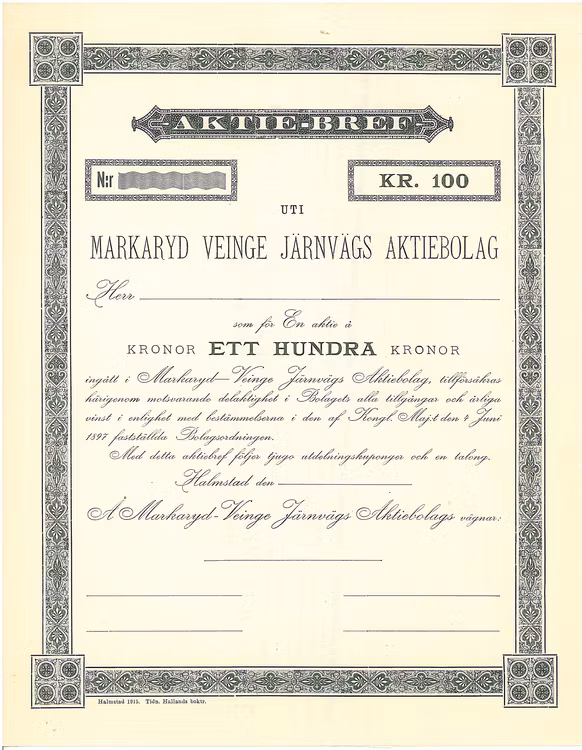 AKTIE-BREF
N:r
KR. 100
UTI
MARKARYD VEINGE JÄRNVÄGS AKTIEBOLAG
Herr
som för En aktie à
KRONOR ETT HUNDRA KRONOR
ingått i Markaryd—Veinge Järnvägs Aktiebolag, tillförsäkras
härigenom motsvarande delaktighet i Bolagets alla tillgångar och årliga
vinst i enlighet med bestämmelserna i den af Kongl. Maj:t den 4 Juni
1897 fastställda Bolagsordningen.
Med detta aktiebref följer tjugo utdelningskuponger och en talong.
Halmstad den
Å Markaryd-Veinge Järnvägs Aktiebolags vägnar:
Halmstad 1915. Tidn. Hallands boktr.